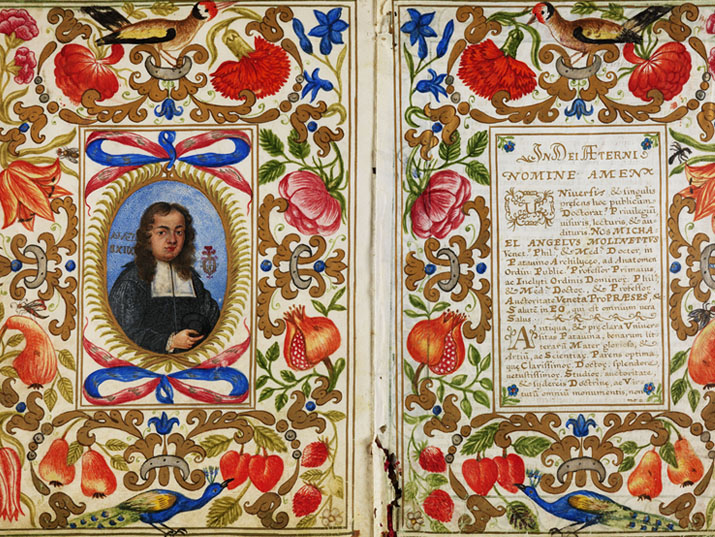 IN DEI ÆTERNI
NOMINE AMEN
Universis & singulis
præsens hoc publicum
Doctorat.s Privilegiũ
visuris, lecturis, & au-
dituris. NOS MICHA-
EL ANGELUS MOLINETTUS
Venet.s Phil.s & Med.s Doctor, in
Patavino Archilyceo, ad Anatomen
Ordin.s Public.s Professor Primarius,
ac Inclyti Ordinis Dominor. Phil.
& Med. Doctor. & Professor.
Auctoritate Veneta ProPRÆSES, &
Salutẽ in EO, qui est omnium vera
Salus.
Antiqua, & præclara Univer
sitas Patavina, bonarum lit
terarũ Mater gloriosa, &
Artiũ, ac Scientiar. Parens optima,
que Clarissimor. Doctor. splendore
venustissimor. Studior. auctoritate,
& sydereis Doctrinæ, ac Vir-
tutũ omniũ monumentis, non
mo-